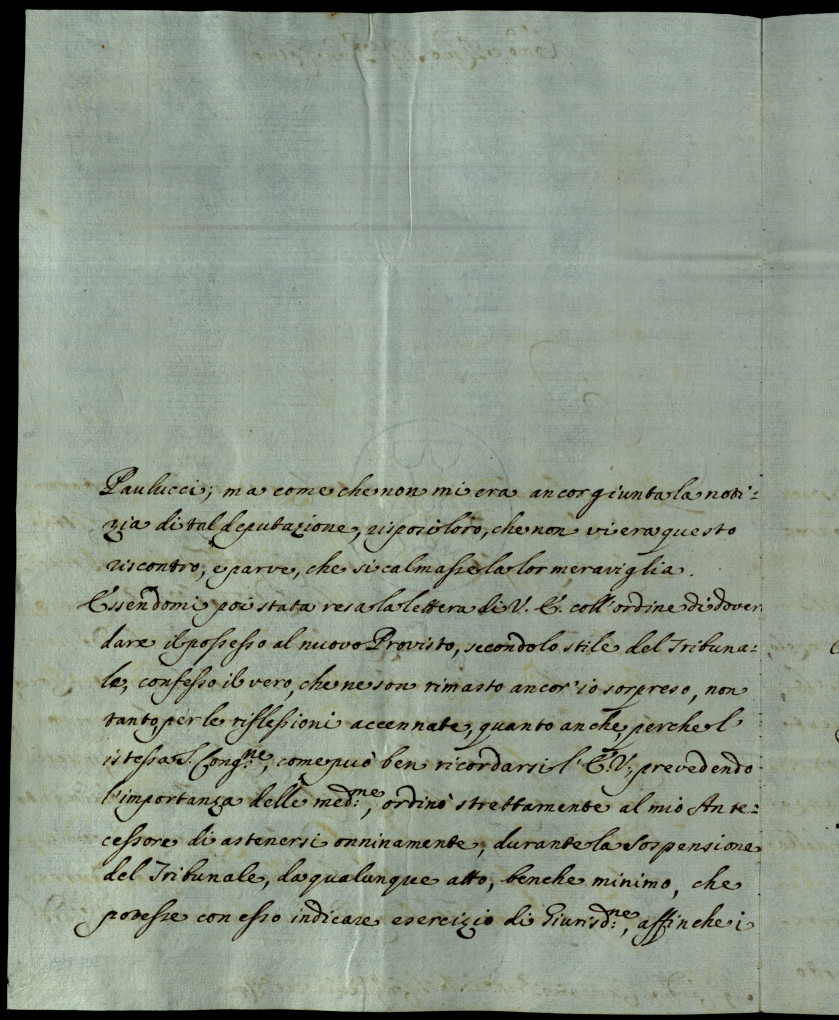 Paulucci; ma come che non mi era ancor giunta la noti:
zia di tal deputazione, risposi loro, che non vi era questo
riscontro, e parve, che si calmasse la lor meraviglia.
Essendomi poi stata resa la lettera di V. E. coll'ordine di dover
dare il possesso al nuovo Provisto, secondo lo stile del Tribuna:
le, confesso il vero, che ne son rimasto ancor'io sorpreso, non
tanto per le riflessioni accennate, quanto anche, perche l'
istessa S. Cong.ne, come può ben ricordarsi l'E.V., prevedendo
l'importanza delle med.me, ordinò strettamente al mio Ante:
cessore di astenersi onninamente, durante la sospensione
del Tribunale, da qualunque atto, benche minimo, che
potesse con esso indicare esercizio di Giurisd.ne, affinche i